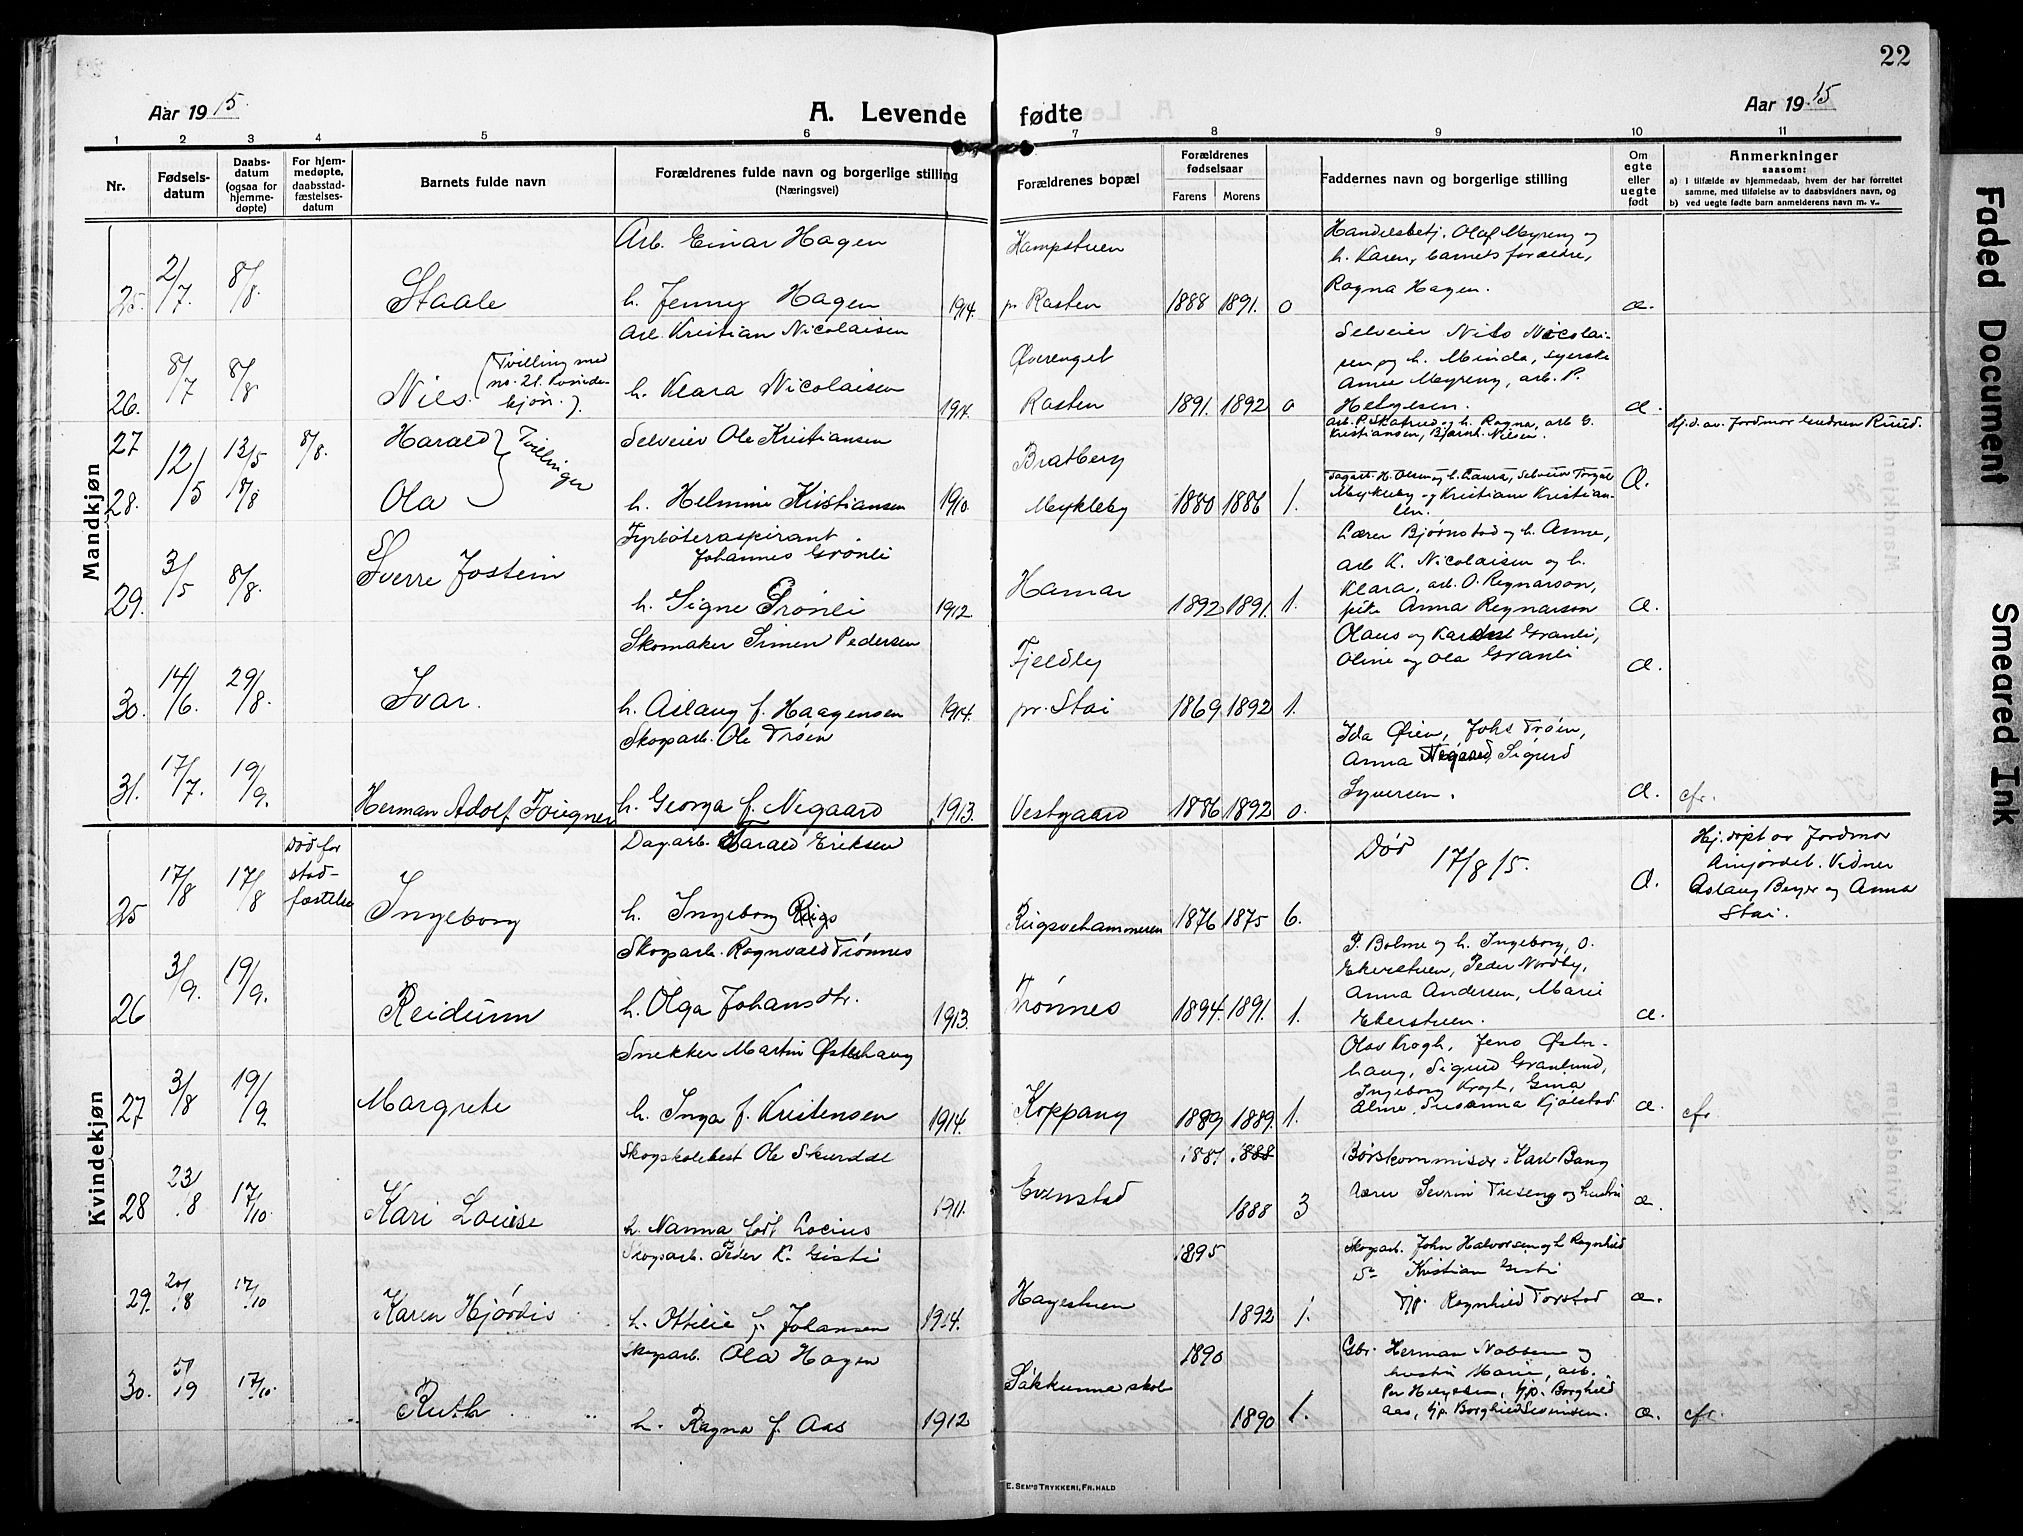 22
Aar 1915.
A. Levende fødte
Aar 1915
1 2 3 4 5 6 7 8 9 10 11
Nr.
Fødsels-
datum
Daabs-
datum
(ogsaa for
hjemme-
døpte)
For hjem-
medøpte,
daabsstad-
fæstelses-
datum
Barnets fulde navn
Forældrenes fulde navn og borgerlige stilling
(Næringsvei)
Forældrenes bopæl
Forældrenes
fødselsaar
Farens Morens
Faddernes navn og borgerlige stilling
Om
egte
eller
uegte
født
Anmerkninger
saasom:
a) I tilfælde av hjemmedaab, hvem der har forrettet
samme, med tilføielse av to daabsvidners navn, og
b) ved uegte fødte barn anmelderens navn m. v.
Mandkjøn
Arb. Einar Hagen Kampstuen Handelsbetj. Olaf Myreng og
h. Karen, barnets forældre,
25. 2/7. 8/8. Staale h. Jenny Hagen 1914. pr. Rasten 1888 1891. 0 Ragna Hagen. æ.
Arb. Kristian Nicolaisen Øverenget Selveier Nils Nicolai-
sen og h. Minda, syerske
26. 8/7 8/8 Nils. (Tvilling med
no. 21. kvinde-
kjøn.). h. Klara Nicolaisen 1914. Rasten 1891. 1892 0 Anne Myreng, arb. P.
Helgesen. æ.
27 12/5 13/5 8/8. Harald } Tvillinger Selveier Ole Kristiansen Bratberg arb. P. Skafrud og h. Ragna, arb. G.
Kristiansen, Bjarnh. Nilsen. Hj.d. av Jordmor Gudrun Ruud.
28. 18/8 Ola h. Helmine Kristiansen 1910. Mykleby 1880 1886 1. Dagarb. H. Olsen og h. Laura, Selveier Torgal
Mykleby og Kristiane Kristian-
sen. Æ.
Fyrbøteraspirant
Johannes Grønli Hamar Lærer Bjørnstad og h. Anne,
arb. K. Nicolaisen og h.
29. 3/5 8/8. Sverre Jostein h. Signe Grønli 1912. 1892 1891. 1. Klara, arb. O. Regnarson,
pike Anna Regnarson æ.
Skomaker Simen Pedersen Fjeldby Olaus og Karen Granli,
Oline og Ola Granli æ.
30. 14/6. 29/8. Ivar. h. Aslaug f. Haagensen 1914. pr. Stai 1869 1892 1.
Skogarb. Ole Trøen Ida Øien, Johs Trøen,
Anna Negaard, Sigurd
31. 17/7. 19/9. Herman Adolf h. Georga f. Negaard 1913. Vestgaard 1886 1892 0. Syversen. æ. cfr.
Kvindekjøn
Død før
stad-
fæstelse
Dagarb. Harald Eriksen Død 17/8 15. Hj.døpt av Jordmor
Vidner
25 17/8 17/8 Ingeborg h. Ingeborg Rugs 1876 1875 6. Æ. Aslaug Berger og Anna
Stai.
Skogarb. Ragnvald Trønnes P. Bolme og h. Ingeborg, O.
Ekerstuen, Peder Nordby,
26 3/9. 19/9. Reidunn h. Olga Johansdtr. 1913. Trønnes 1894. 1891. 1. Anna Andersen, Marie
Ekerstuen. æ.
Snekker Martin Østerhaug Olav Krogh, Jens Øster-
haug, Sigurd Granlund,
27 3/8 19/9 Margrete h. Inga f. Kristensen 1914. Koppang 1889 1889. 1. Ingeborg Krogh, Gina
Alme, Susanna Kjølstad æ. cfr.
Skogskolebest Ole Skurdal Evenstad 1881. 1888 Børskommisær Karl Bang
28 23/8 17/10. Kari Louise h. Nanna født Locius 1911. 1888 3 Lærer Sevrin Treseng og hustru æ.
Skogarb. Peder K. Gisti 1895 Skogarb. John Halvorsen og h. Ragnhild
Do Kristian Gisti
29. 20/8 17/10 Karen Hjørdis h. Ottilie f. Johansen 1914. Hagestuen 1892 1. Tjp. Ragnhild Torstad æ.
Skogarb. Ola Hagen 1890 Gbr. Herman Nabsen og
hustru Marie, arb.
30. 5/9 17/10. Ruth h. Ragna f. Aas 1912 Søkkunna skole 1890 1. Per Helgesen, tjp. Borghild
Aas, tjp. Borghild Sevrinsen. æ. cfr.
E. SEM'S TRYKKERI, FR.HALD
Faded Document
Smeared Ink